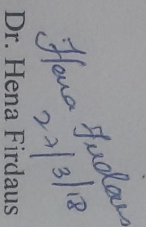 Hena Firdaus
27/3/18
Dr. Hena Firdaus